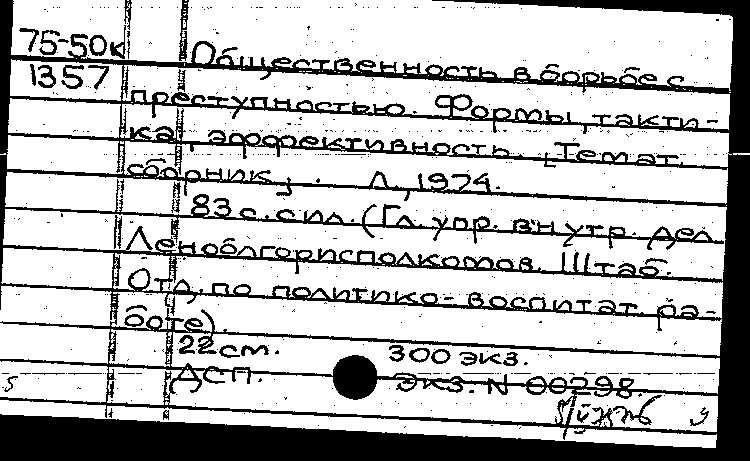 75-50к Общественность в борьбе с
1357 преступностью. Формы, такти-
ка, эффективность. [Темат.
сборник]. Л., 1974.
83 с. с ил. (Гл. упр. внутр. дел
Леноблгорисполкомов. Штаб.
Отд. по политико-воспитат. ра-
боте).
22 см. 300 экз.
ДСП. Экз. N 00298.